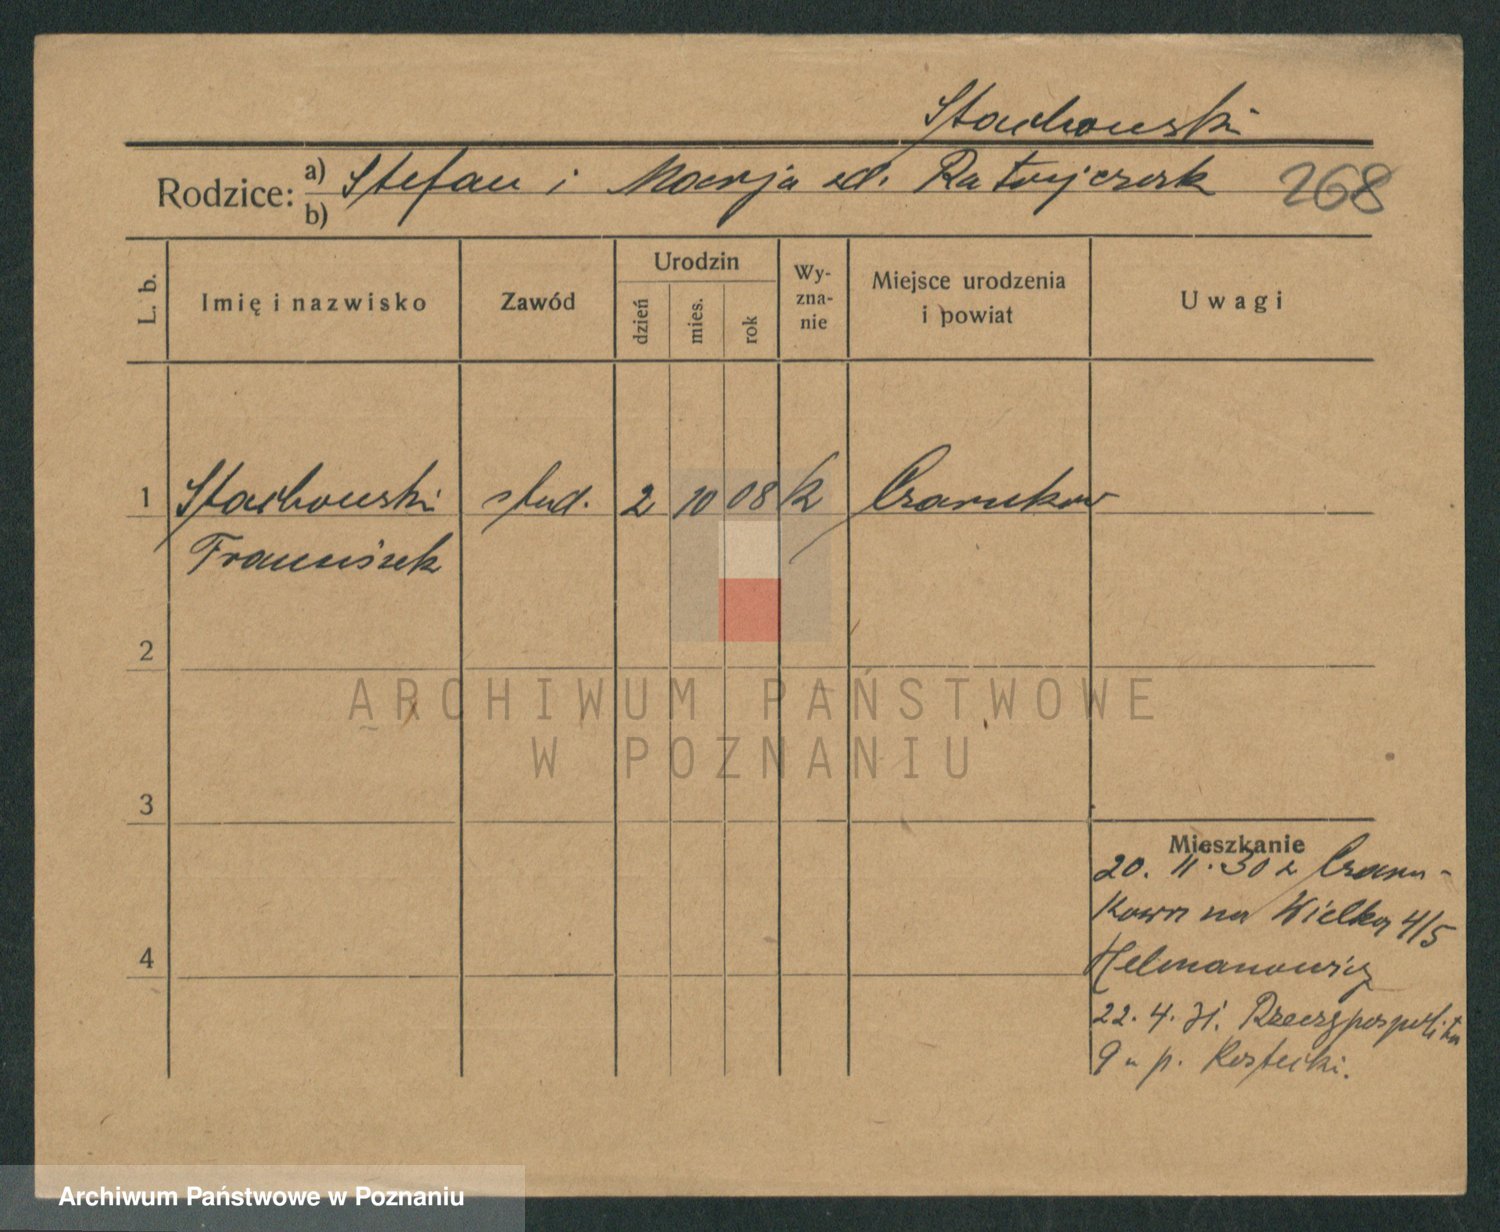 Stachowski
Rodzice: a) Stefan i Marja zd. Ratajczak 268
b)
L. b. Imię i nazwisko Zawód Urodzin dzień mies. rok Wy-zna-nie Miejsce urodzenia i powiat Uwagi
1 Stachowski stud. 2 10 08 k Czarnków
Franciszek
2
ARCHIWUM PAŃSTWOWE
W POZNANIU
3
Mieszkanie
20. 11. 30 z Czarn-
kowa na Wielka 4/5
4
Helmanowicz
22. 4. 31. Rzeczypospolita
9 u p. Kostecki.
Archiwum Państwowe w Poznaniu